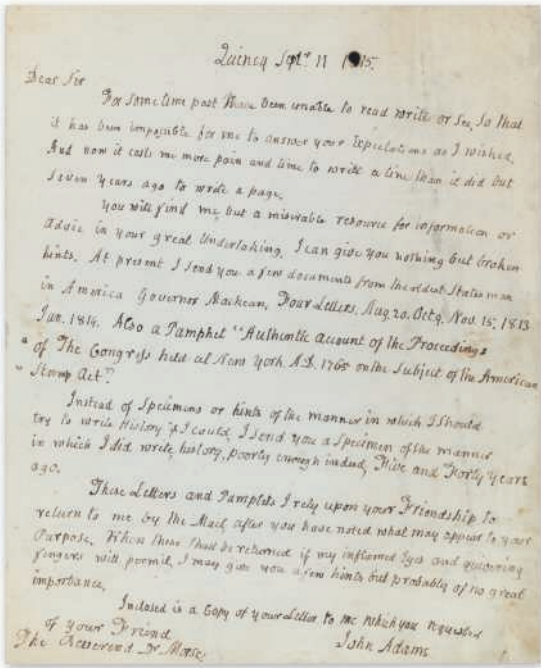 Quincy Sept. 11 1815.
Dear Sir
For some time past I have been unable to read write or see, so that
it has been impossible for me to answer your Expectations as I wished,
And now it costs me more pain and time to write a line than it did but
Seven Years ago to write a page.
You will find me, but a miserable resource for information or
advice in your great Undertaking. I can give you nothing but broken
hints. At present I send you a few documents from the oldest Statesman
in America Governor Mackean, Four Letters, Aug. 20, Oct 9. Nov. 15, 1813
Jan. 1814. Also a Pamphlet "Authentic account of the Proceedings
" of The Congress held at New York A.D. 1765 on the Subject of the American
" Stamp Act".
Instead of Specimens or hints of the manner in which I should
try to write History if I could, I send you a Specimen of the manner
in which I did write history, poorly enough indeed, Five and Forty Years
ago.
These Letters and Pamplets I rely upon your Friendship to
return to me by the Mail, after you have noted what may appear to your
Purpose. When these shall be returned if my inflamed Eyes and quivering
fingers will permit, I may give you a few hints but probably of no great
importance.
Inclosed is a Copy of your Letter to me which you requested
of your Friend
John Adams
The Reverend Dr Morse.